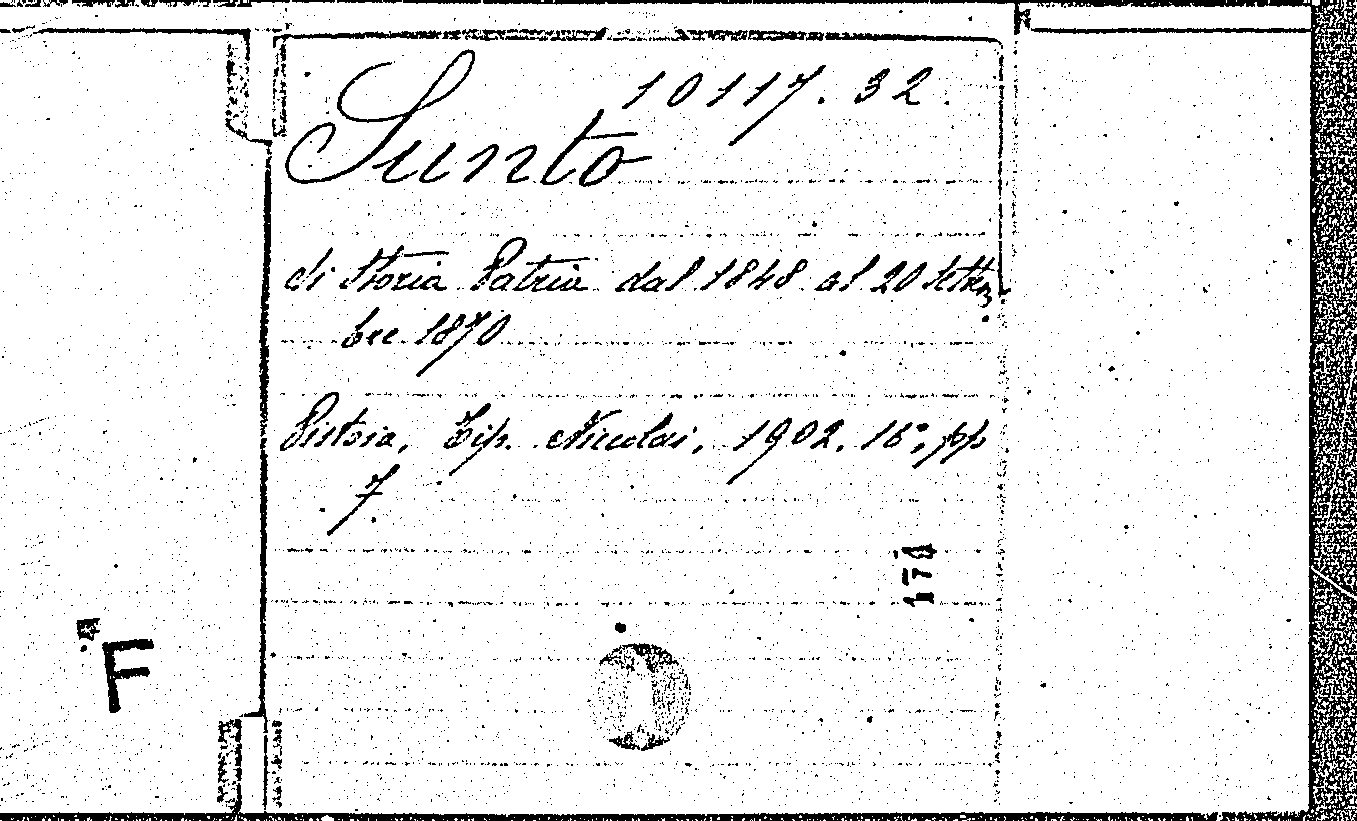 10117.32.
Sunto
di Storia Patria dal 1848 al 20 Settem
bre 1870
Pistoia, Tip. Niccolai, 1902. 16°, pp
7.
F